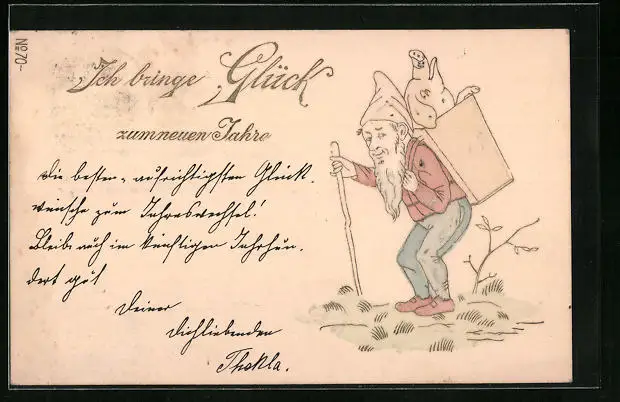 No 70-
Ich bringe Glück
zum neuen Jahre
Die besten u. aufrichtigsten Glück-
wünsche zum Jahreswechsel!
Bleib auch im künftigen Jahrhun-
dert gut
Deiner
Dichliebenden
Thekla.